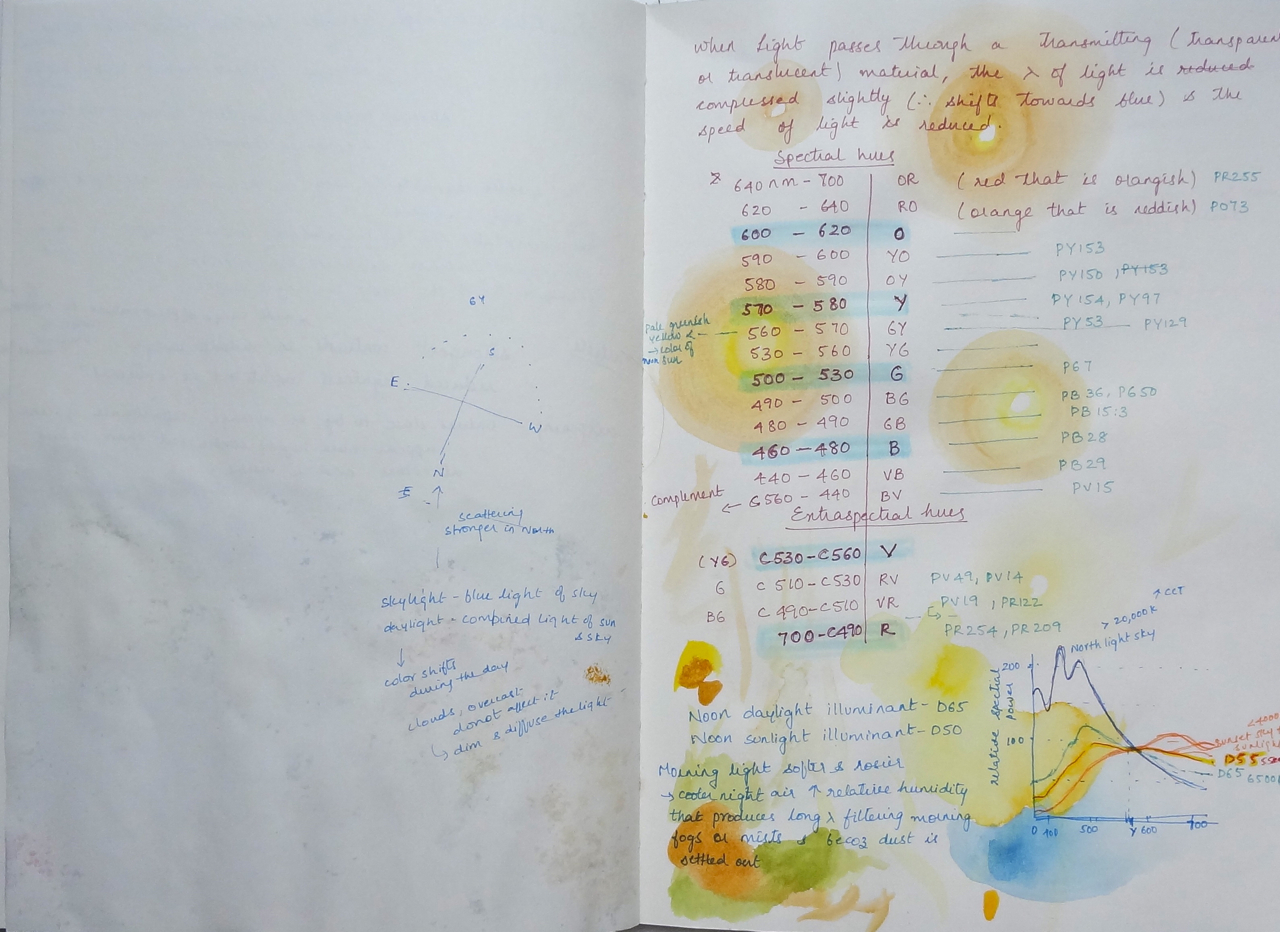 GY
S
E
W
N
E
scattering
stronger in North
skylight - blue light of sky
daylight - combined light of sun
& sky
color shifts
during the day
clouds, overcast
donot affect it
↳ dim & diffuse the light
when light passes through a transmitting (transparen
or translucent) material, the λ of light is reduced
compressed slightly (∴ shifts towards blue) & the
speed of light is reduced.
Spectral hues
640nm - 700 OR (red that is orangish) PR255
620 - 640 RO (orange that is reddish) PO73
600 - 620 O
590 - 600 YO PY153
580 - 590 OY PY150, PY153
570 - 580 Y PY154, PY97
pale greenish
yellow
→ color of
noon sun
560 - 570 GY PY53 PY129
530 - 560 YG
500 - 530 G PG7
490 - 500 BG PB36, PG50
480 - 490 GB PB15:3
460 - 480 B PB28
440 - 460 VB PB29
complement ← G560 - 440 BV PV15
Extraspectral hues
(YG) C530 - C560 V
G C510 - C530 RV PV49, PV14
BG C490 - C510 VR PV19, PR122
700 - C490 R PR254, PR209
Noon daylight illuminant - D65
Noon sunlight illuminant - D50
Morning light softer & rosier
→ cooler night air ↑ relative humidity
that produces long λ filtering morning
fogs or mists & becoz dust is
settled out
↑ CCT
> 20,000K
North light sky
relative spectral
power
200
100
<4000
sunset sky +
sunlight
D55
D65 6500
0 400 500 Y 600 700